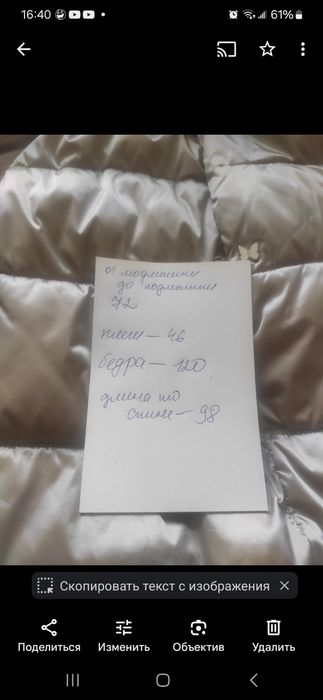 16:40
61%
от подмышки
до подмышки
72
плечи — 46
бедра — 120
длина по
спине — 98
Скопировать текст с изображения
Поделиться
Изменить
Объектив
Удалить